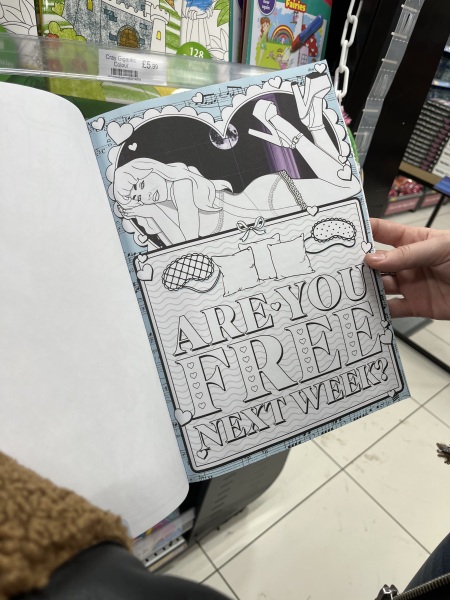 Fairies
128
£5.99
ARE YOU
FREE
NEXT WEEK?